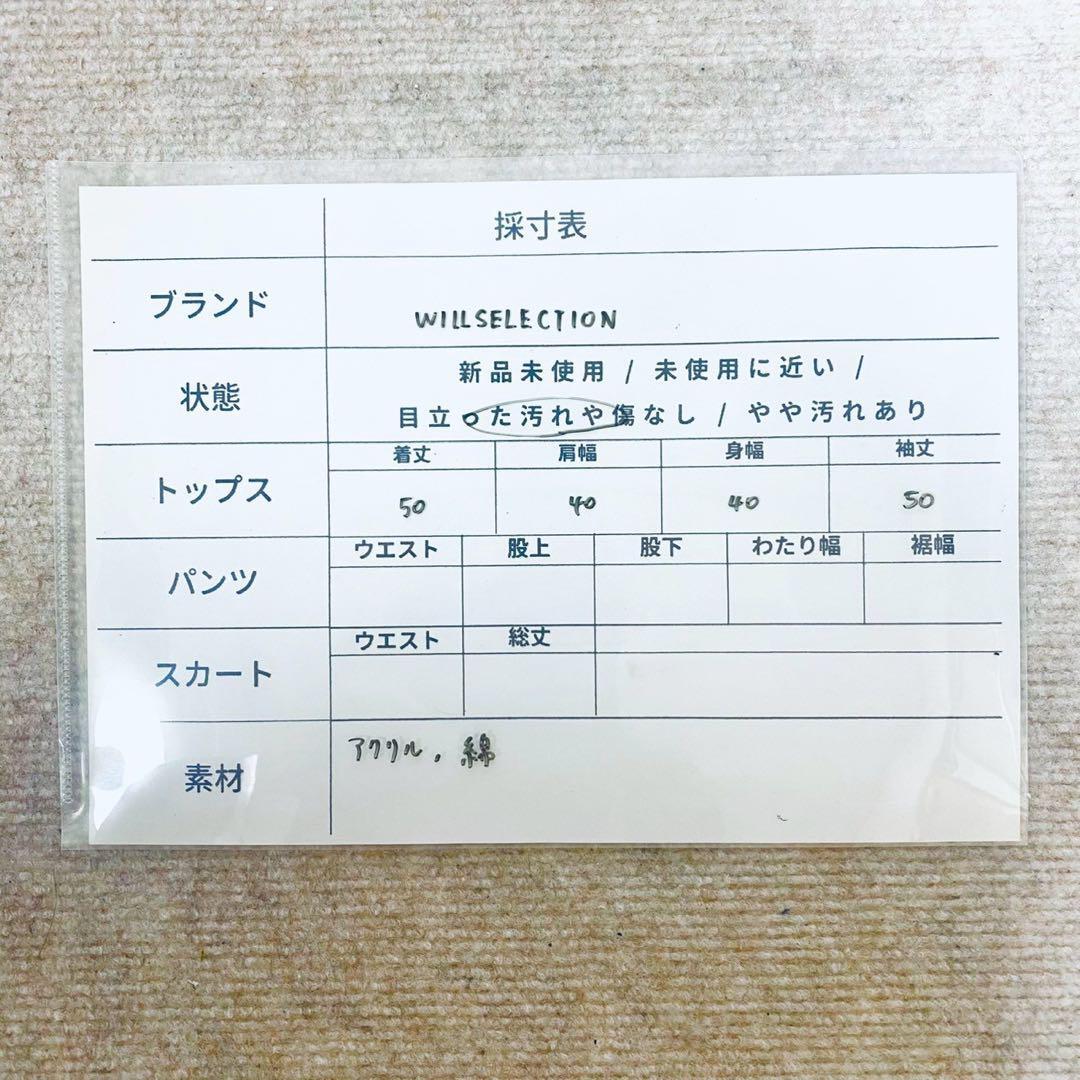 採寸表
ブランド
WILLSELECTION
状態
新品未使用 / 未使用に近い /
目立った汚れや傷なし / やや汚れあり
トップス
着丈 肩幅 身幅 袖丈
50 40 40 50
パンツ
ウエスト 股上 股下 わたり幅 裾幅
スカート
ウエスト 総丈
素材
アクリル, 綿